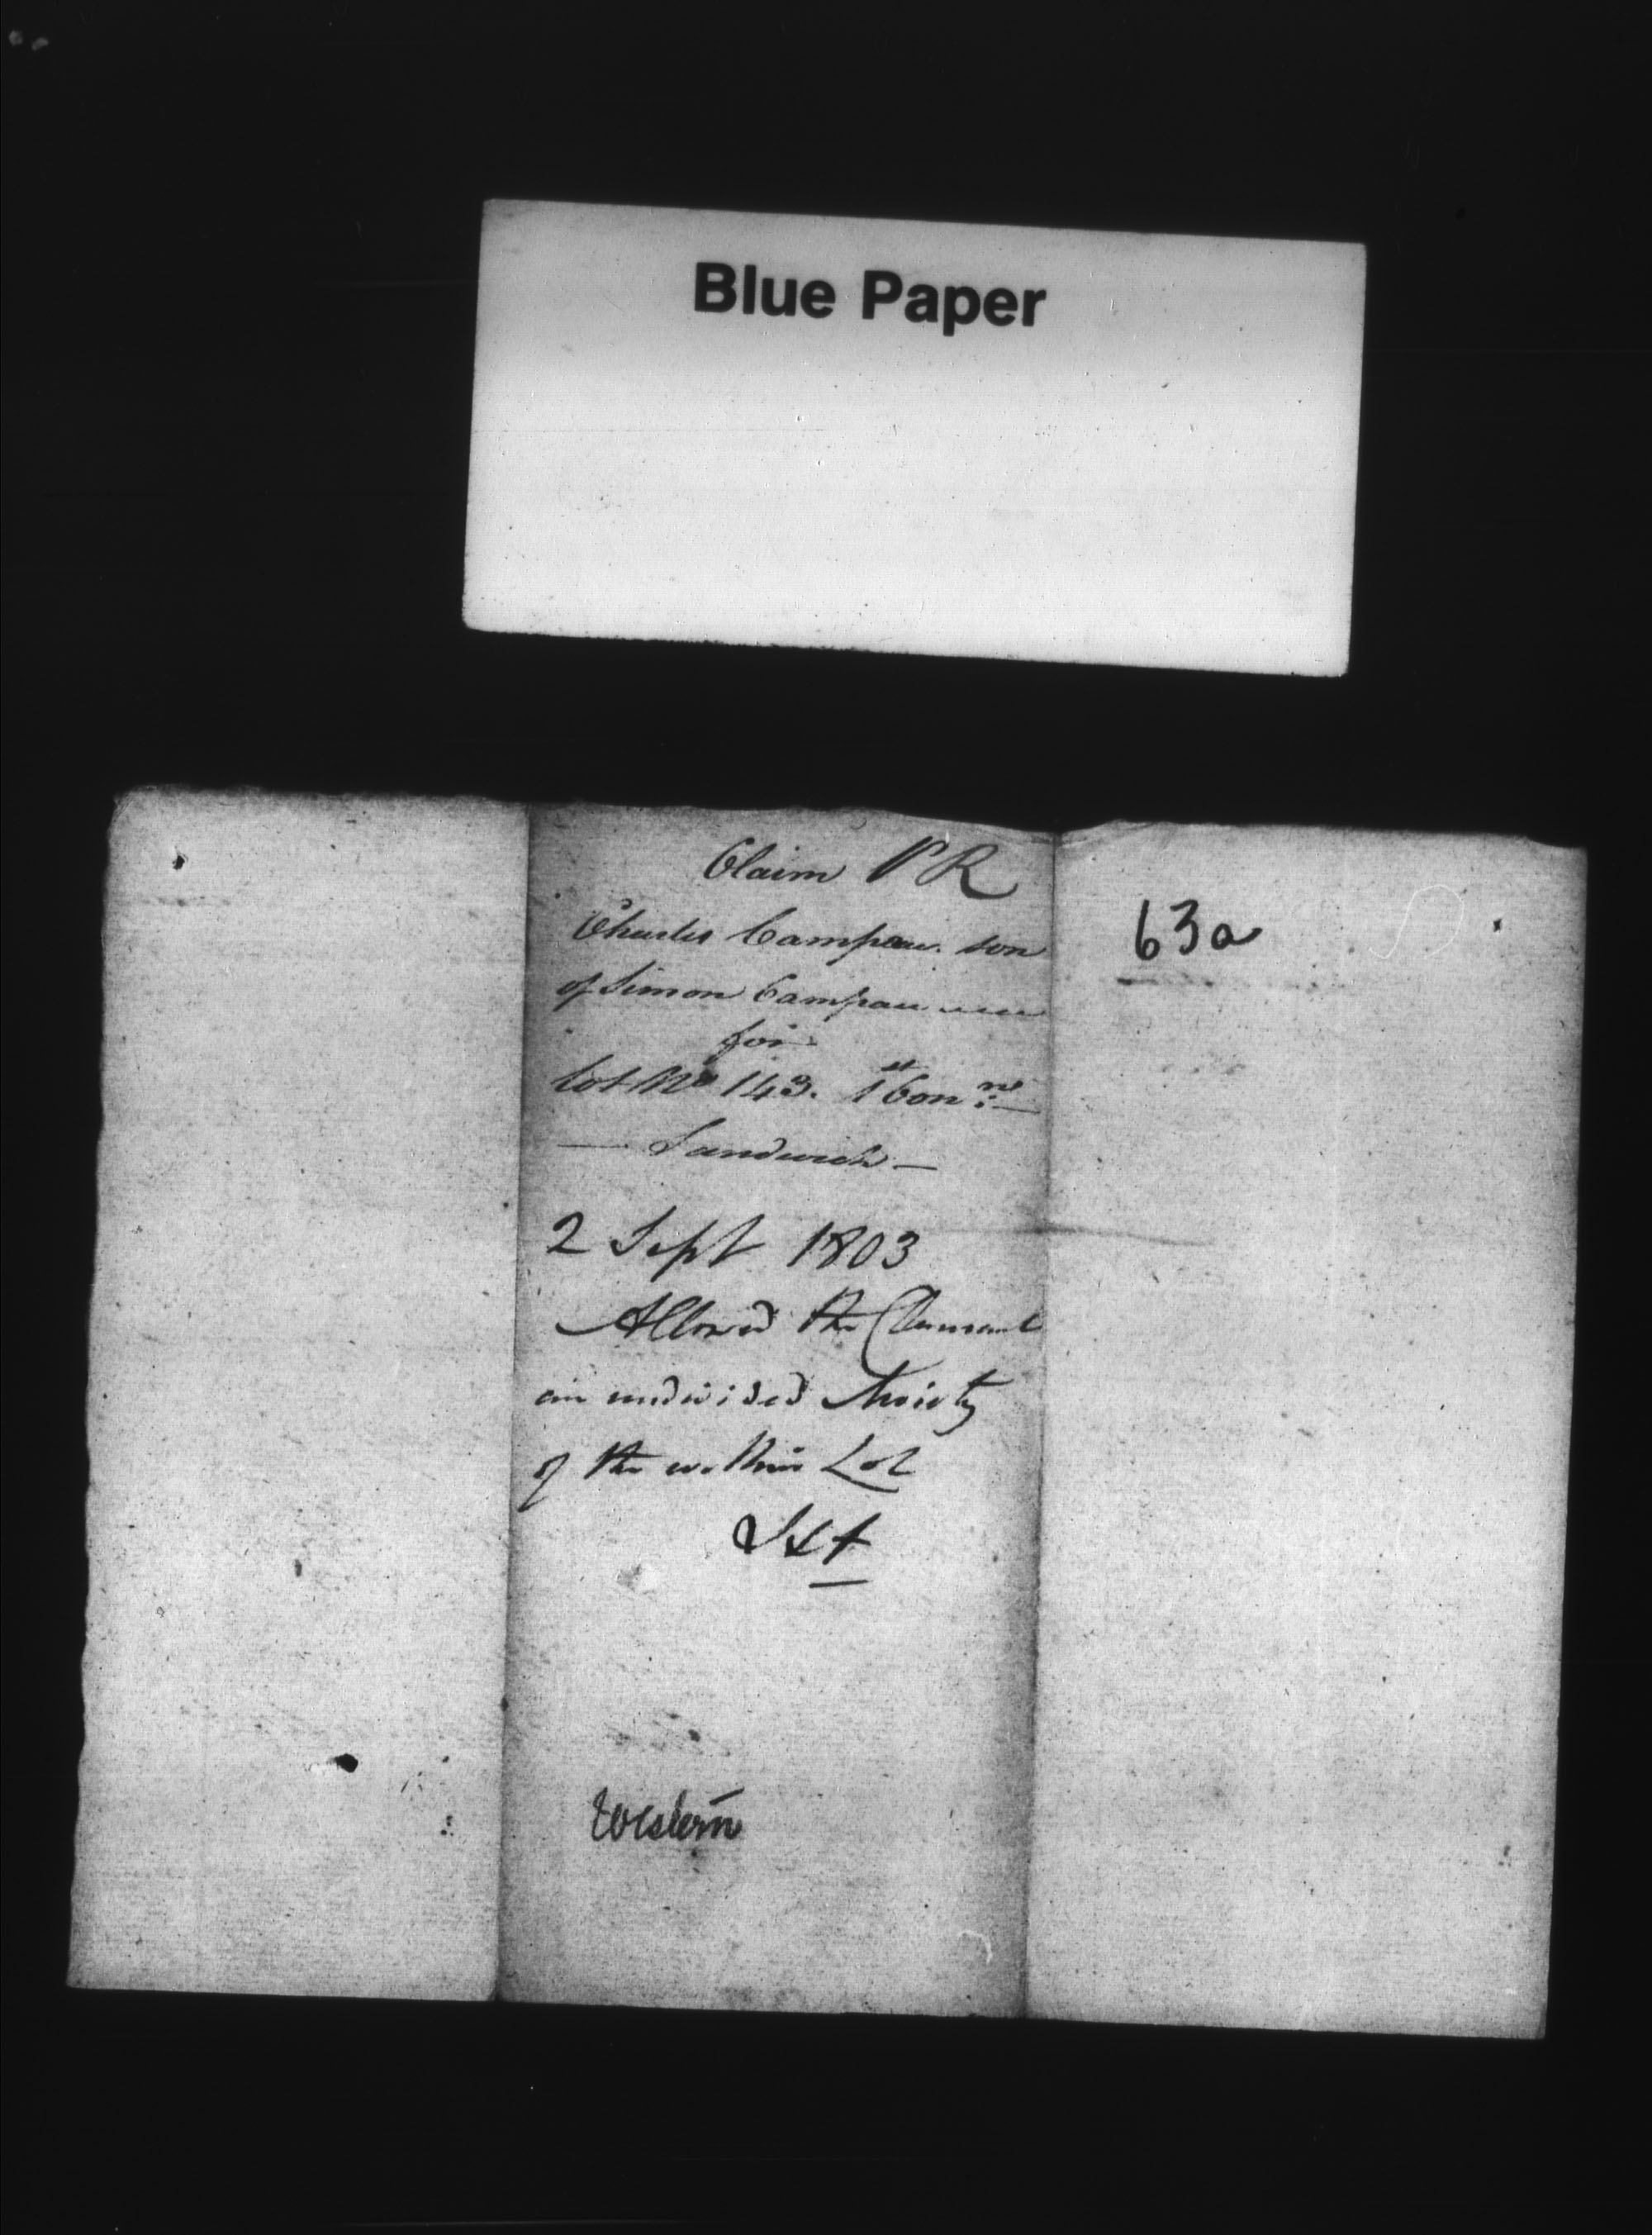 Blue Paper
Claim PR
Charles Campau son
of Simon Campau
for
lot No 143. 1st Conne
— Sandwich —
2 Sept 1803
Allowed the Claimant
an undivided Moiety
of the within Lot
Western
63a